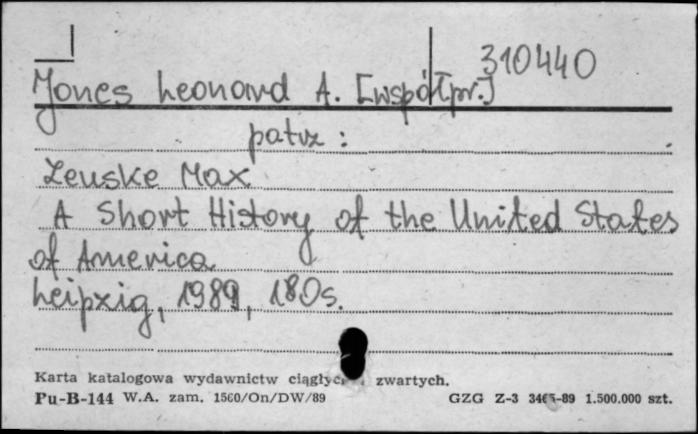 310440
Jones Leonard A. [współpr.]
patrz :
Zeuske Max
A Short History of the United States
of America
Leipzig, 1989, 180s.
Karta katalogowa wydawnictw zwartych.
Pu-B-144 W.A. zam. 1560/On/DW/89 GZG Z-3 -89 1.500.000 szt.